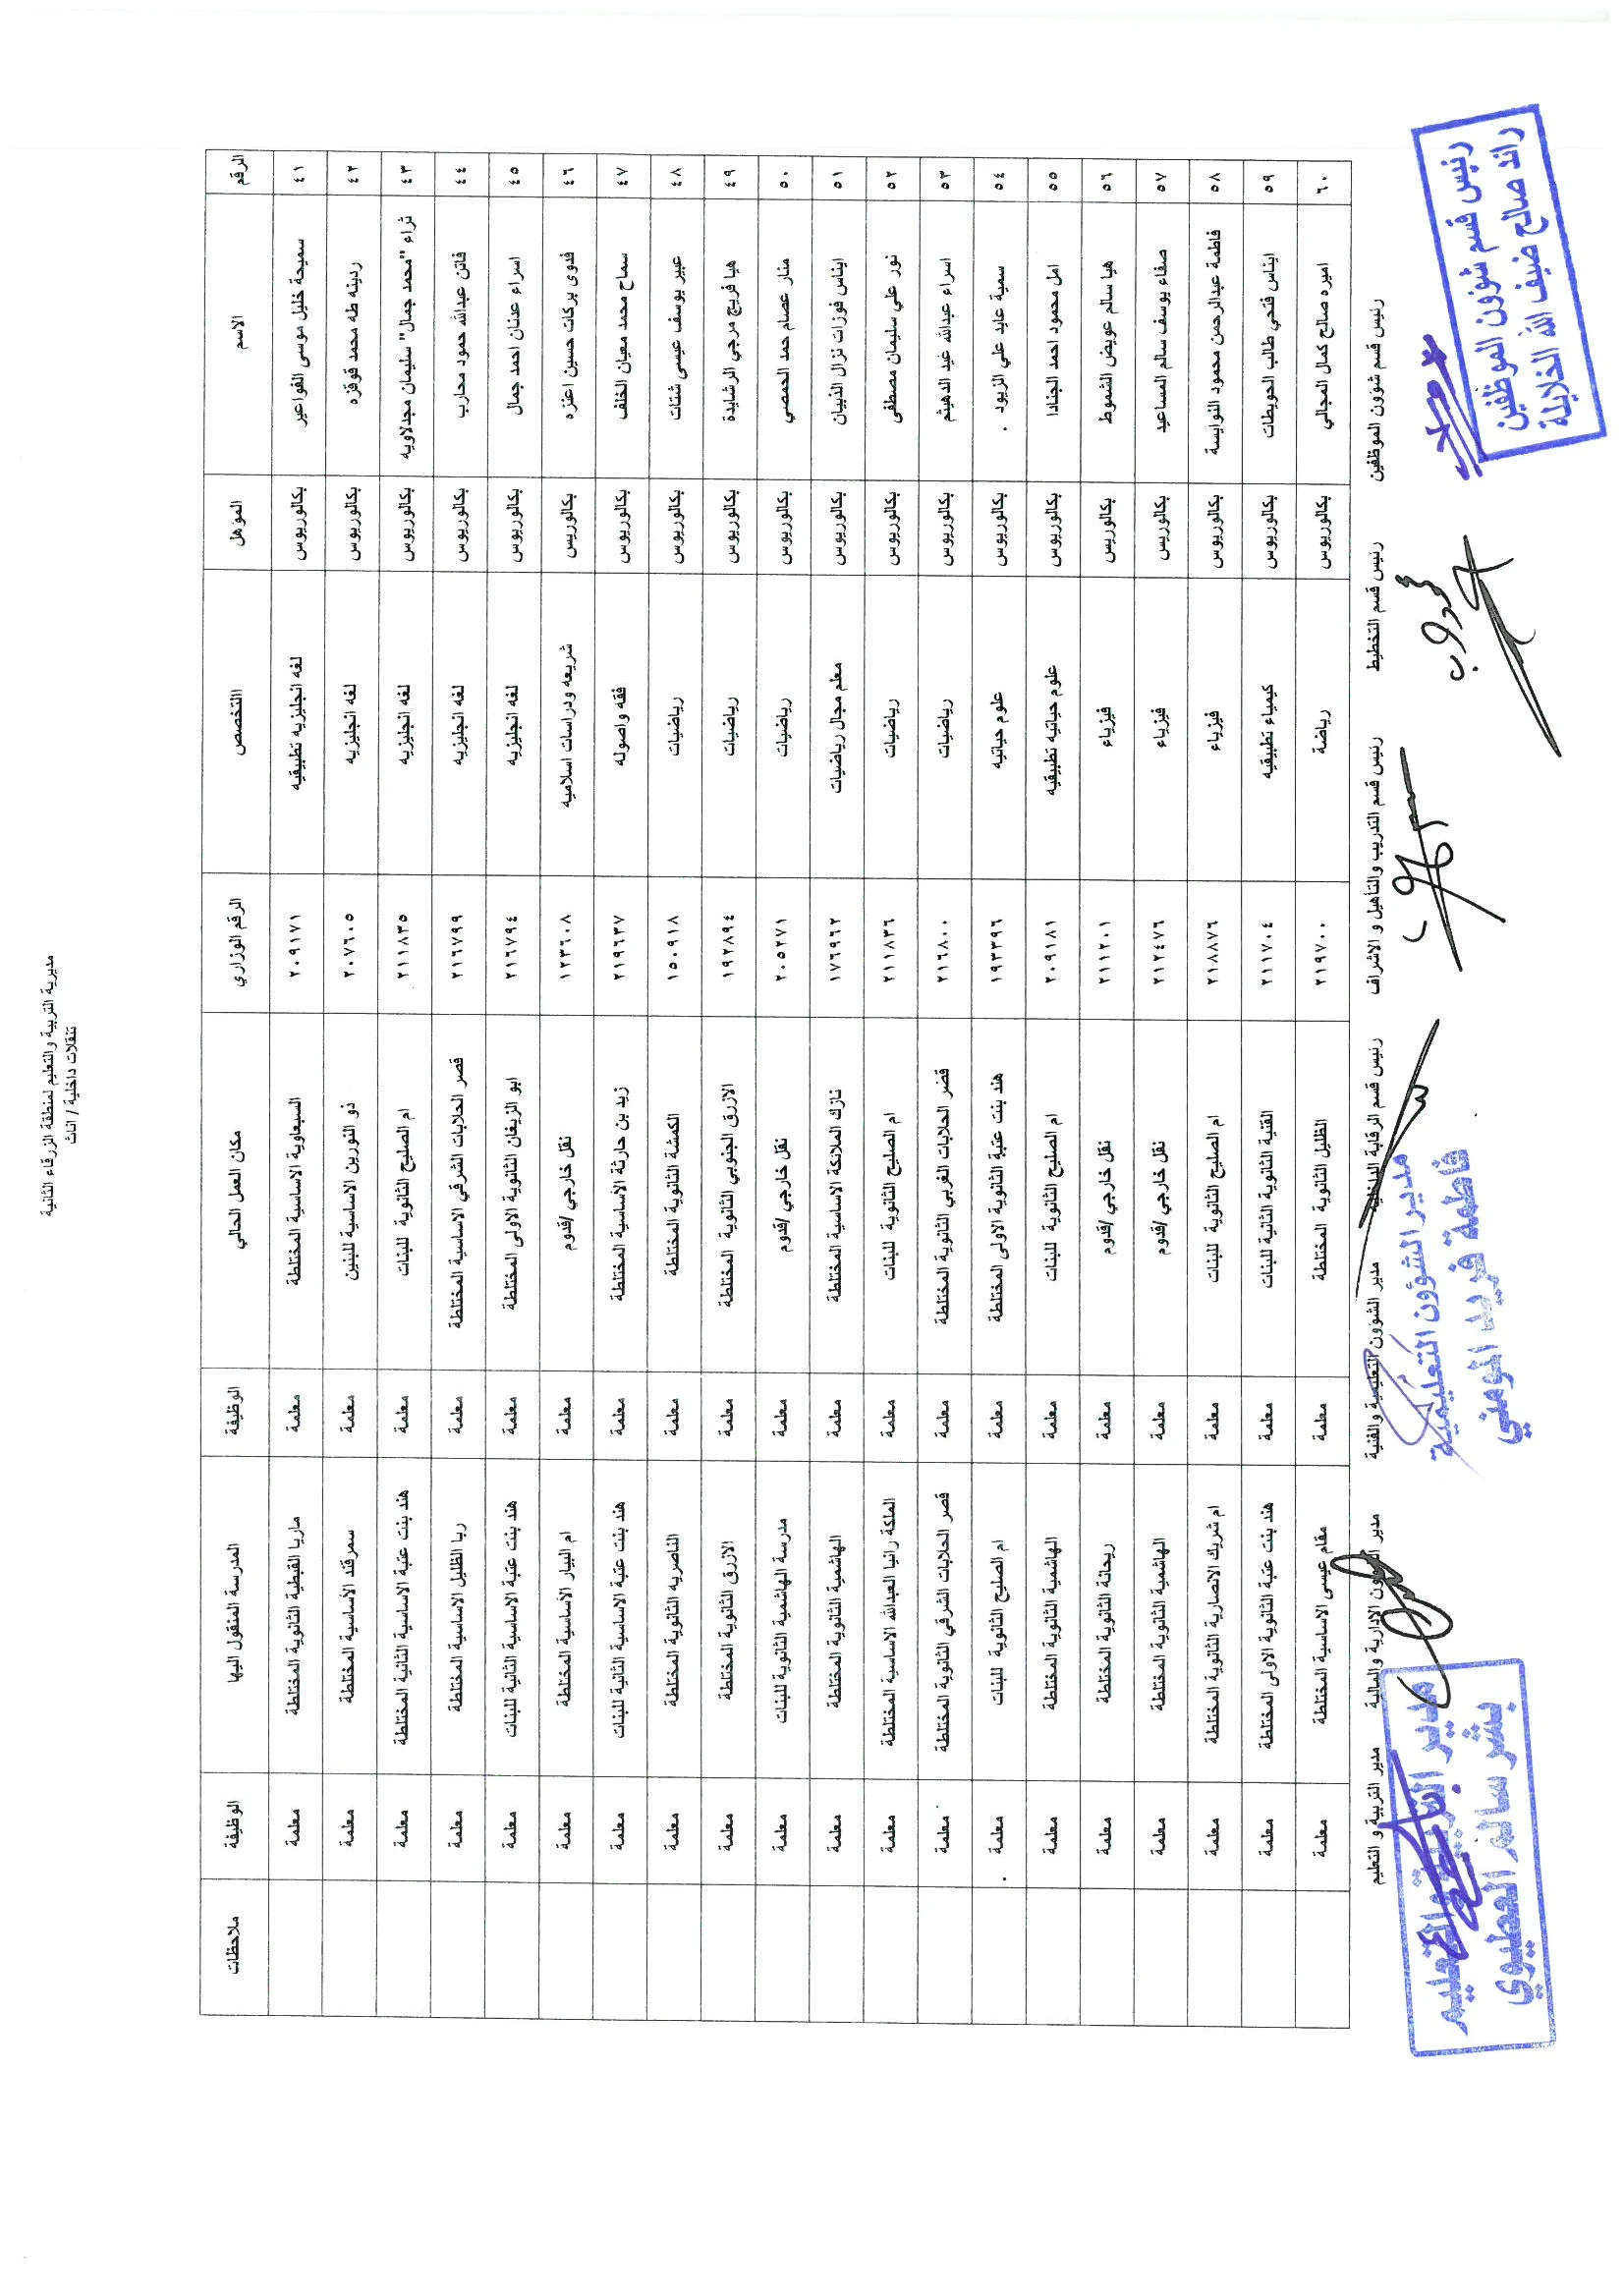 مديرية التربية والتعليم لمنطقة الزرقاء الثانية
تنقلات داخلية / اناث
الرقم الاسم المؤهل التخصص الرقم الوزاري مكان العمل الحالي الوظيفة المدرسة المنقول اليها الوظيفة ملاحظات
٤١ سميحة خليل موسى الفواعير بكالوريوس لغه انجليزيه تطبيقيه ٢٠٩١٧١ السبعاوية الاساسية المختلطة معلمة ماريا القبطية الثانوية المختلطة معلمة
٤٢ ردينه طه محمد قوقزه بكالوريوس لغه انجليزيه ٢٠٧٦٠٥ ذو النورين الاساسية للبنين معلمة سمرقند الأساسية المختلطة معلمة
٤٣ ثراء "محمد جمال" سليمان مجدلاويه بكالوريوس لغه انجليزيه ٢١١٨٣٥ ام الصليح الثانوية للبنات معلمة هند بنت عتبة الاساسية الثانية المختلطة معلمة
٤٤ فاتن عبدالله حمود محارب بكالوريوس لغه انجليزيه ٢١٦٧٩٩ قصر الحلابات الشرقي الاساسية المختلطة معلمة ربا الظليل الاساسية المختلطة معلمة
٤٥ اسراء عدنان احمد جمال بكالوريوس لغه انجليزيه ٢١٦٧٩٤ ابو الزيغان الثانوية الاولى المختلطة معلمة هند بنت عتبة الاساسية الثانية للبنات معلمة
٤٦ فدوى بركات حسين اعنزه بكالوريس شريعه ودراسات اسلاميه ١٢٣٦٠٨ نقل خارجي /قدوم معلمة ام البيار الأساسية المختلطة معلمة
٤٧ سماح محمد معيان الخلف بكالوريوس فقه واصوله ٢١٩٦٣٧ زيد بن حارثة الأساسية المختلطة معلمة هند بنت عتبة الاساسية الثانية للبنات معلمة
٤٨ عبير يوسف عيسى شتات بكالوريوس رياضيات ١٥٠٩١٨ الكمشة الثانوية المختلطة معلمة الناصريه الثانوية المختلطة معلمة
٤٩ هيا فريج مرجي الرشايدة بكالوريوس رياضيات ١٩٢٨٩٤ الازرق الجنوبي الثانوية المختلطة معلمة الازرق الثانوية المختلطة معلمة
٥٠ منار عصام حمد الحمصي بكالوريوس رياضيات ٢٠٥٢٧١ نقل خارجي /قدوم معلمة مدرسة الهاشمية الثانوية للبنات معلمة
٥١ ايناس فوزات نزال الذبيان بكالوريوس معلم مجال رياضيات ١٧٦٩٦٢ نازك الملائكة الاساسية المختلطة معلمة الهاشمية الثانوية المختلطة معلمة
٥٢ نور علي سليمان مصطفى بكالوريوس رياضيات ٢١١٨٣٦ ام الصليح الثانوية للبنات معلمة الملكة رانيا العبدالله الاساسية المختلطة معلمة
٥٣ اسراء عبدالله غيد الدهيثم بكالوريوس رياضيات ٢١٦٨٠٠ قصر الحلابات الغربي الثانوية المختلطة معلمة قصر الحلابات الشرقي الثانوية المختلطة معلمة
٥٤ سمية عايد علي الزيود بكالوريوس علوم حياتيه ١٩٣٣٩٦ هند بنت عتبة الثانوية الاولى المختلطة معلمة ام الصليح الثانوية للبنات معلمة
٥٥ امل محمود احمد الجنادا بكالوريوس علوم حياتيه تطبيقيه ٢٠٩١٨١ ام الصليح الثانوية للبنات معلمة الهاشمية الثانوية المختلطة معلمة
٥٦ هيا سالم عويض الشموط بكالوريس فيزياء ٢١١٢٠١ نقل خارجي /قدوم معلمة ريحانة الثانوية المختلطة معلمة
٥٧ صفاء يوسف سالم المساعيد بكالوريس فيزياء ٢١٢٤٧٦ نقل خارجي /قدوم معلمة الهاشمية الثانوية المختلطة معلمة
٥٨ فاطمة عبدالرحمن محمود النوايسة بكالوريوس فيزياء ٢١٨٨٧٦ ام الصليح الثانوية للبنات معلمة ام شريك الانصارية الثانوية المختلطة معلمة
٥٩ ايناس فتحي طالب الحويطات بكالوريوس كيمياء تطبيقيه ٢١١٧٠٤ القنية الثانوية الثانية للبنات معلمة هند بنت عتبة الثانوية الاولى المختلطة معلمة
٦٠ اميره صالح كمال المجالي بكالوريوس رياضة ٢١٩٧٠٠ الظليل الثانوية المختلطة معلمة مقام عيسى الاساسية المختلطة معلمة
رئيس قسم شؤون الموظفين رئيس قسم التخطيط رئيس قسم التدريب والتأهيل و الاشراف رئيس قسم الرقابة الداخلية مدير الشؤون التعليمية والفنية مدير الشؤون الادارية والمالية مدير التربية و التعليم
رئيس قسم شؤون الموظفين
رائد صالح ضيف الله الخلايلة
مدير الشؤون التعليمية
فاطمة فريد المومني
مدير التربية والتعليم